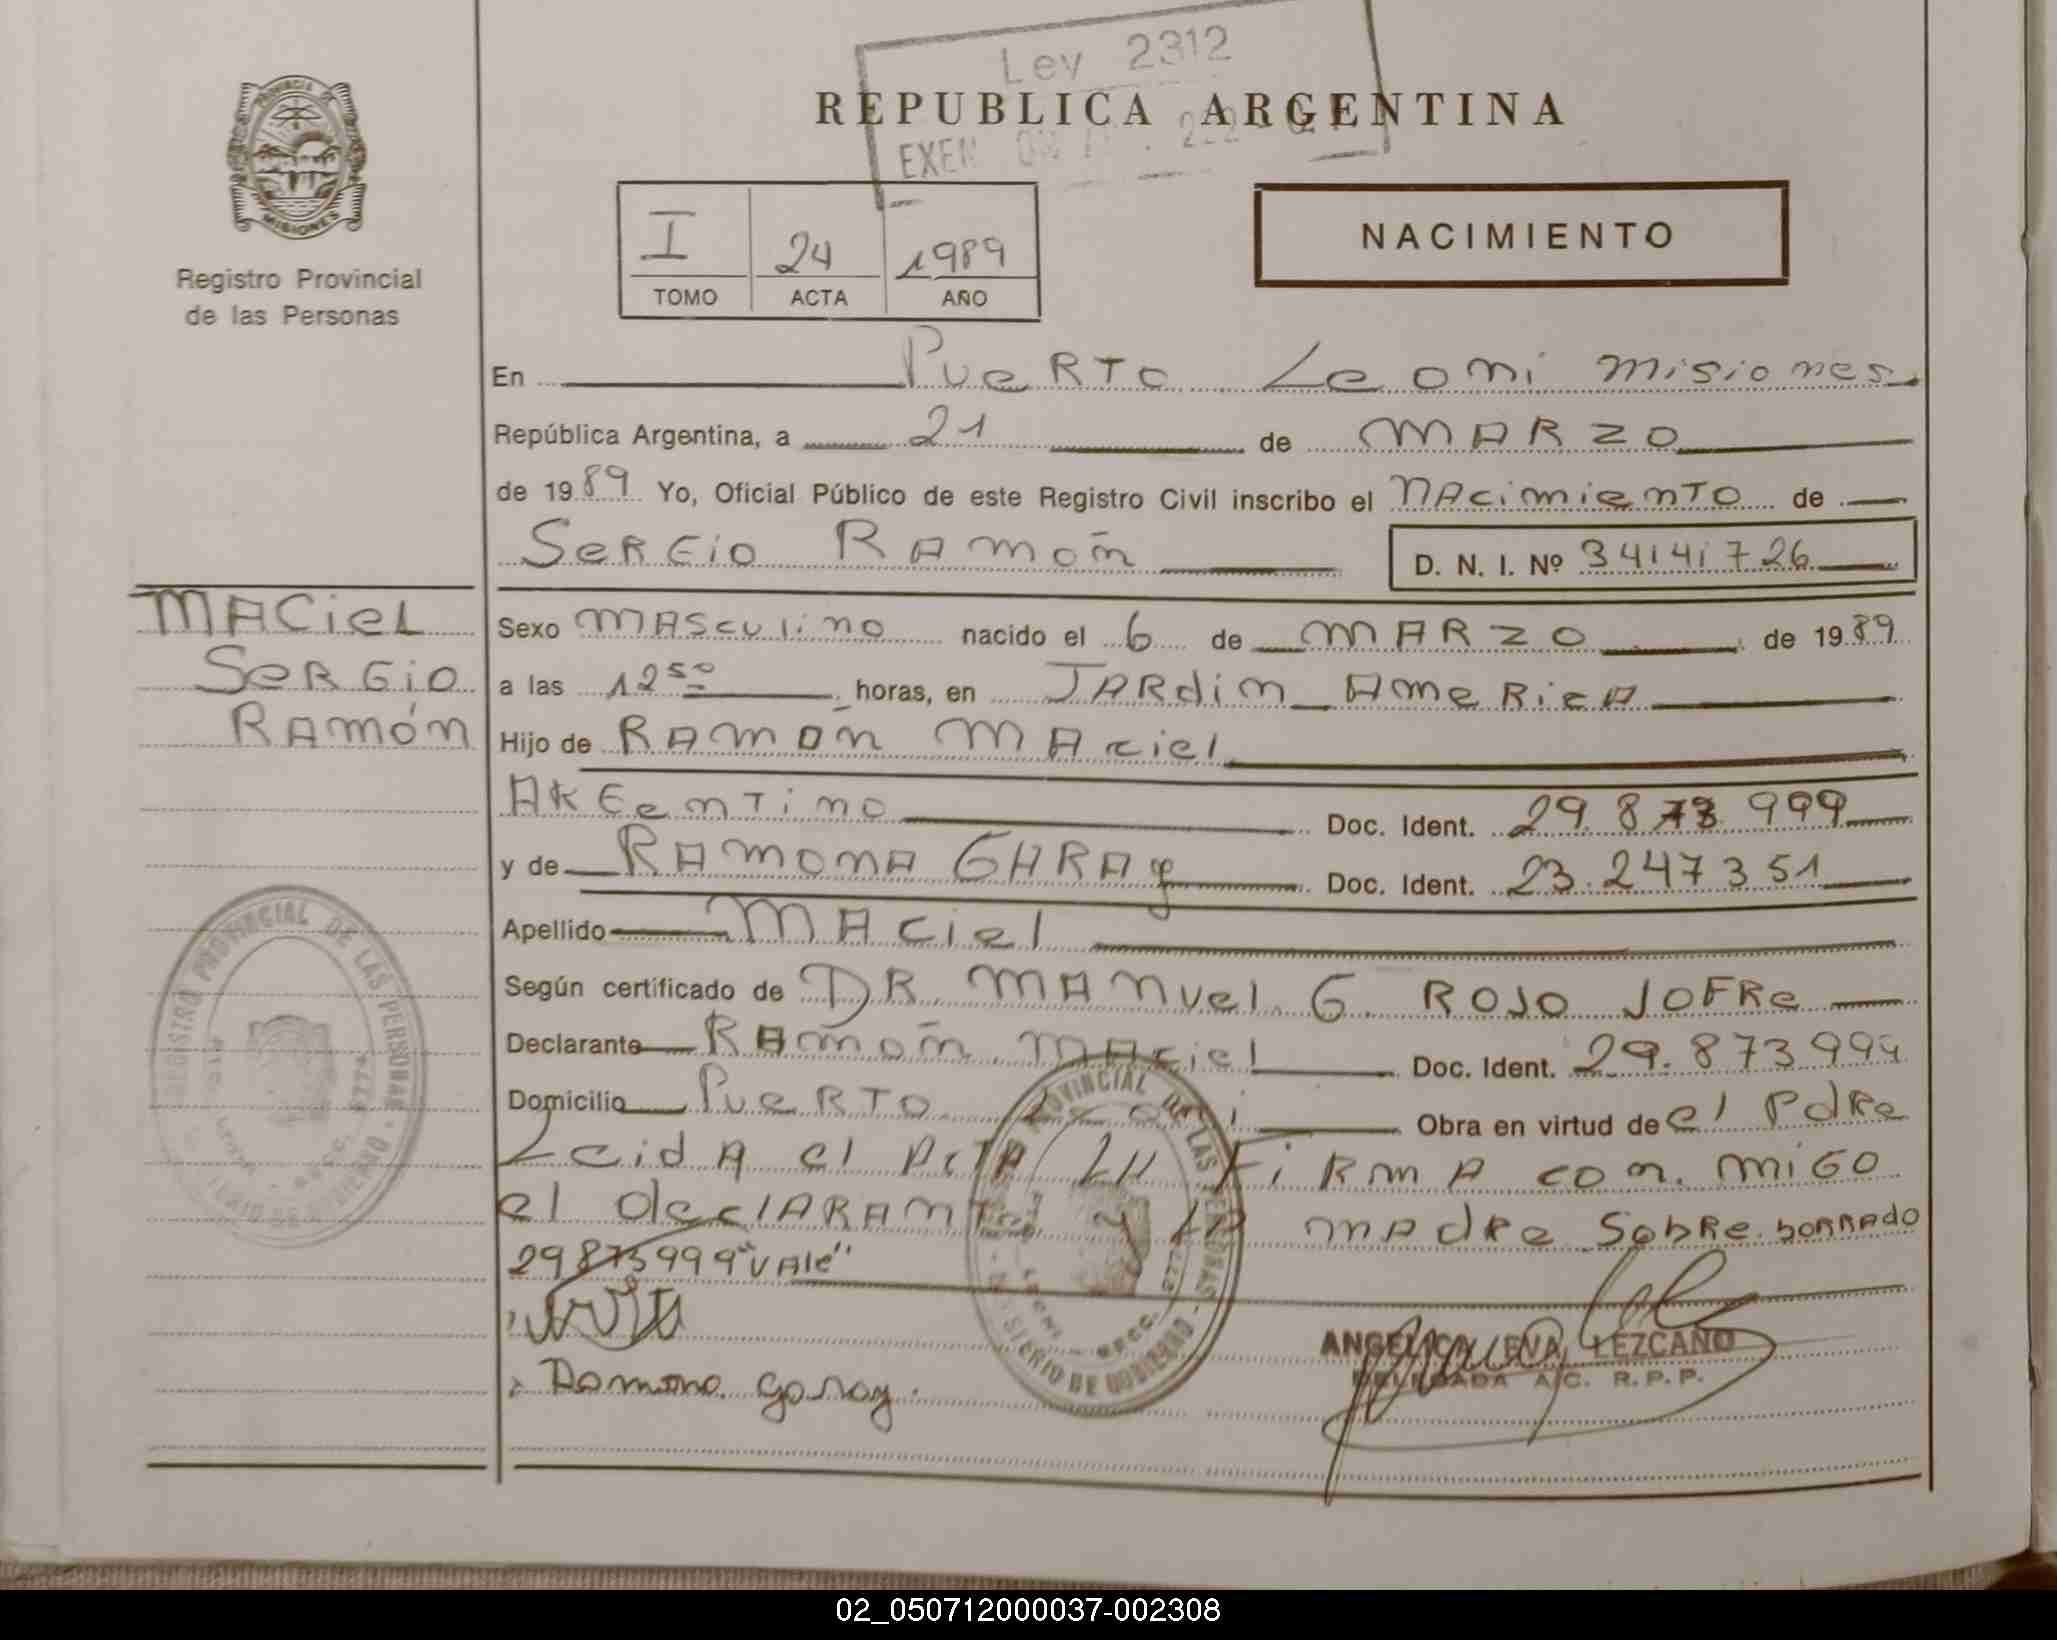 Ley 2312
REPUBLICA ARGENTINA
EXEN
PROVINCIA DE
MISIONES
Registro Provincial
de las Personas
I 24 1989
TOMO ACTA AÑO
NACIMIENTO
En Puerto Leoni misiones
República Argentina, a 21 de MARZO
de 1989 Yo, Oficial Público de este Registro Civil inscribo el NAcimiento de
SERGio RAmón
D. N. I. Nº 34141726
MACiel
SERGio
RAMón
Sexo MASculino nacido el 6 de MARZO de 1989
a las 12 50 horas, en JARdin AmeRicA
Hijo de RAMON MAciel
ARGentino Doc. Ident. 29.873.999
y de RAmonA GARAy Doc. Ident. 23.247351
Apellido MAciel
Según certificado de DR. MANuel. G. ROJO JOFRe
Declarante RAmón MAciel Doc. Ident. 29.873999
Domicilio PueRTO Leoni Obra en virtud de el PdRe
LeidA el ActA LA FiRmA con migo
el declARAnte y LA mAdRe SobRe borrado
29873999 "VAle"
Ramona Garay
ANGELICA EVA LEZCANO
DELEGADA A/C. R.P.P.
REGISTRO PROVINCIAL DE LAS PERSONAS
02_050712000037-002308